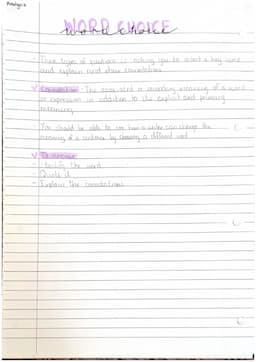 Analysis
WORD CHOICE
word choice
These types of questions is asking you to select a key word
and explain and show connotations
Connotation - The associated or secondary meaning of a word
or expression in addition to its explicit and primary
meaning
You should be able to see how a writer can change the
meaning of a sentence by choosing a different word
To answer
- Identify the word
- Quote it
- Explain the connotations